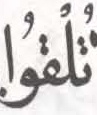 تُلْقُوا